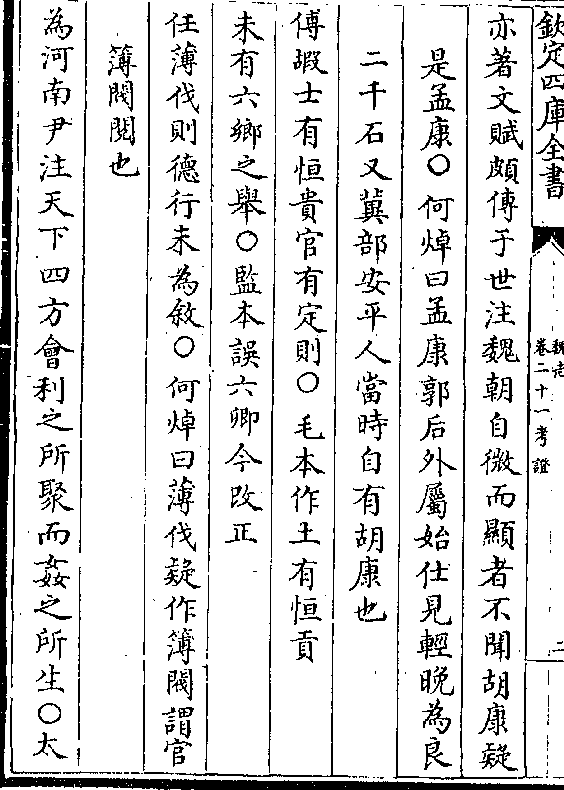 欽定四庫全書
魏志
卷二十一考證
二
亦著文賦頗傳于世注魏朝自微而顯者不聞胡康疑
是孟康〇何焯曰孟康郭后外屬始仕見輕晚為良
二千石又冀部安平人當時自有胡康也
傅嘏士有恒貴官有定則〇毛本作土有恒貢
未有六鄉之舉〇監本誤六卿今改正
任薄伐則德行未為敘〇何焯曰薄伐疑作簿閥謂官
簿閥閱也
為河南尹注天下四方會利之所聚而姦之所生〇太